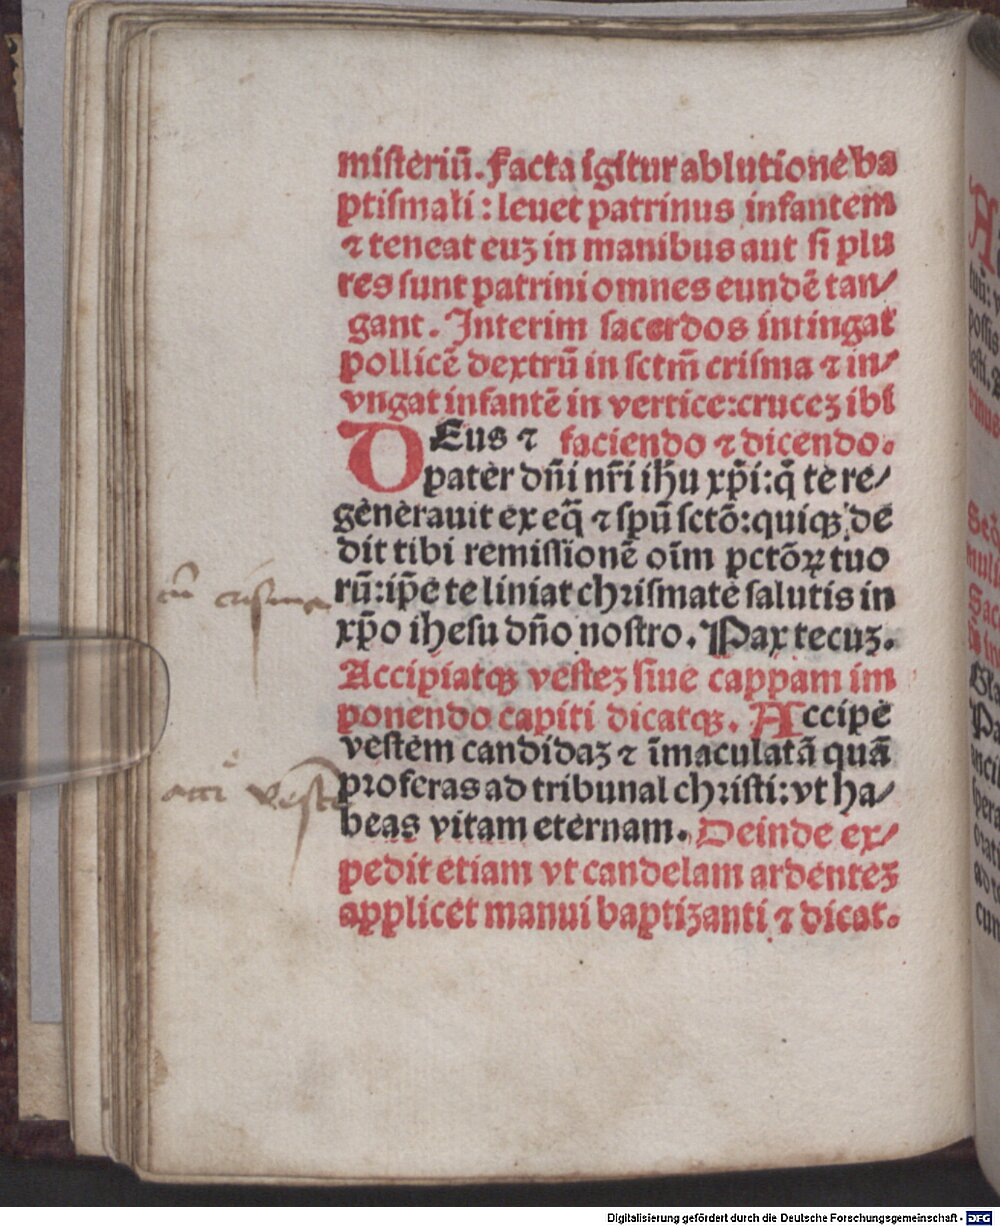 misteriū. Facta igitur ablutione ba
ptismali : leuet patrinus infantem
⁊ teneat euꝫ in manibus aut si plu
res sunt patrini omnes eundē tan/
gant. Interim sacerdos intingat
pollicē dextrū in sctm̄ crisma ⁊ in/
vngat infantē in vertice:cruceꝫ ibi
DEus ⁊ faciendo ⁊ dicendo.
pater dn̄i nr̄i ihu xp̄i:q̄ te re/
generauit ex eq̄ ⁊ spū sctō:quiqꝫ de
dit tibi remissionē oīm pctōꝝ tuo
rū:ip̄e te liniat chrismate salutis in
xp̄o ihesu dn̄o nostro. Pax tecuꝫ.
Accipiatqꝫ vesteꝫ siue cappam im
ponendo capiti dicatqꝫ. Accipe
vestem candidaꝫ ⁊ īmaculatā quā
proferas ad tribunal christi:vt ha/
beas vitam eternam. Deinde ex/
pedit etiam vt candelam ardenteꝫ
applicet manui baptiꝫanti ⁊ dicat.
cū crisma
veste
Digitalisierung gefördert durch die Deutsche Forschungsgemeinschaft - DFG